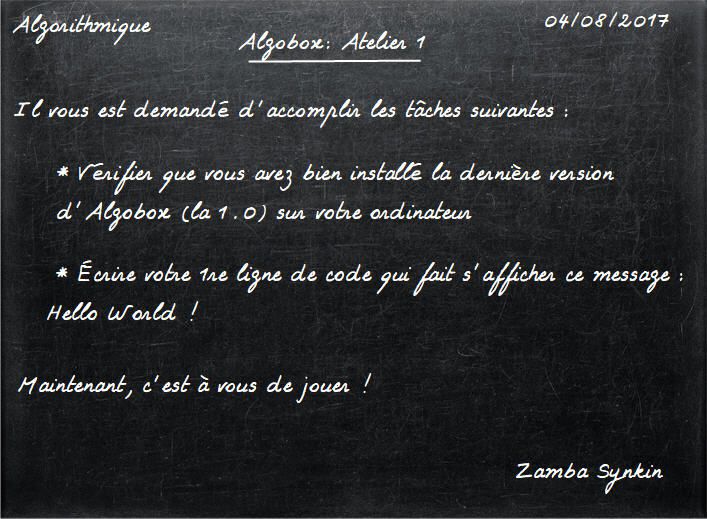 Algorithmique
04/08/2017
Algobox: Atelier 1
Il vous est demandé d'accomplir les tâches suivantes :
* Verifier que vous avez bien installé la dernière version
d'Algobox (la 1.0) sur votre ordinateur
* Écrire votre 1re ligne de code qui fait s'afficher ce message :
Hello World !
Maintenant, c'est à vous de jouer !
Zamba Synkin